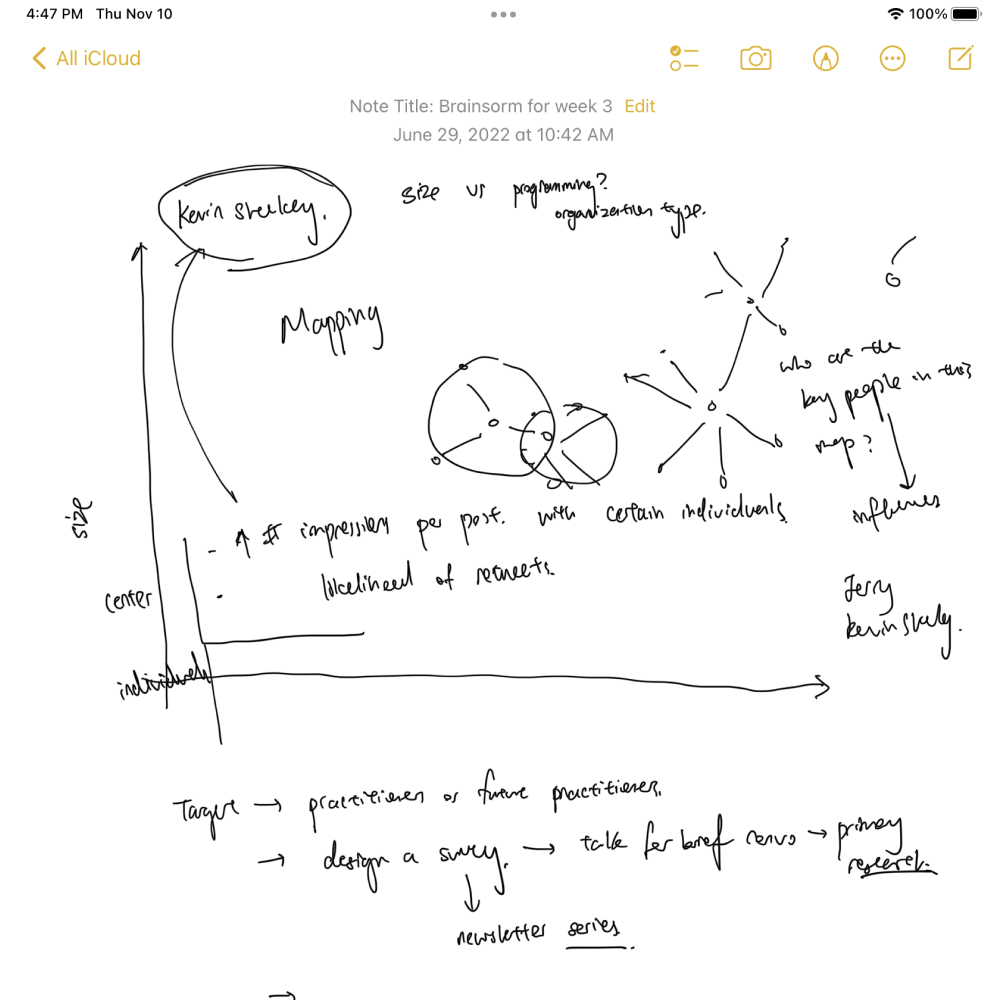 4:47 PM Thu Nov 10
100%
All iCloud
Note Title: Brainsorm for week 3 Edit
June 29, 2022 at 10:42 AM
Kevin
size vs programming?
organization type.
Mapping
who are the
key people in this
map?
size
- ↑ # impressions per post. with certain individuals.
influences
- likelihood of retweets.
center
Jerry
Kevin
individuals
Target → practitioners or future practitioners.
→ design a survey. → talk for brief convo → primary
research.
↓
newsletter series.
→